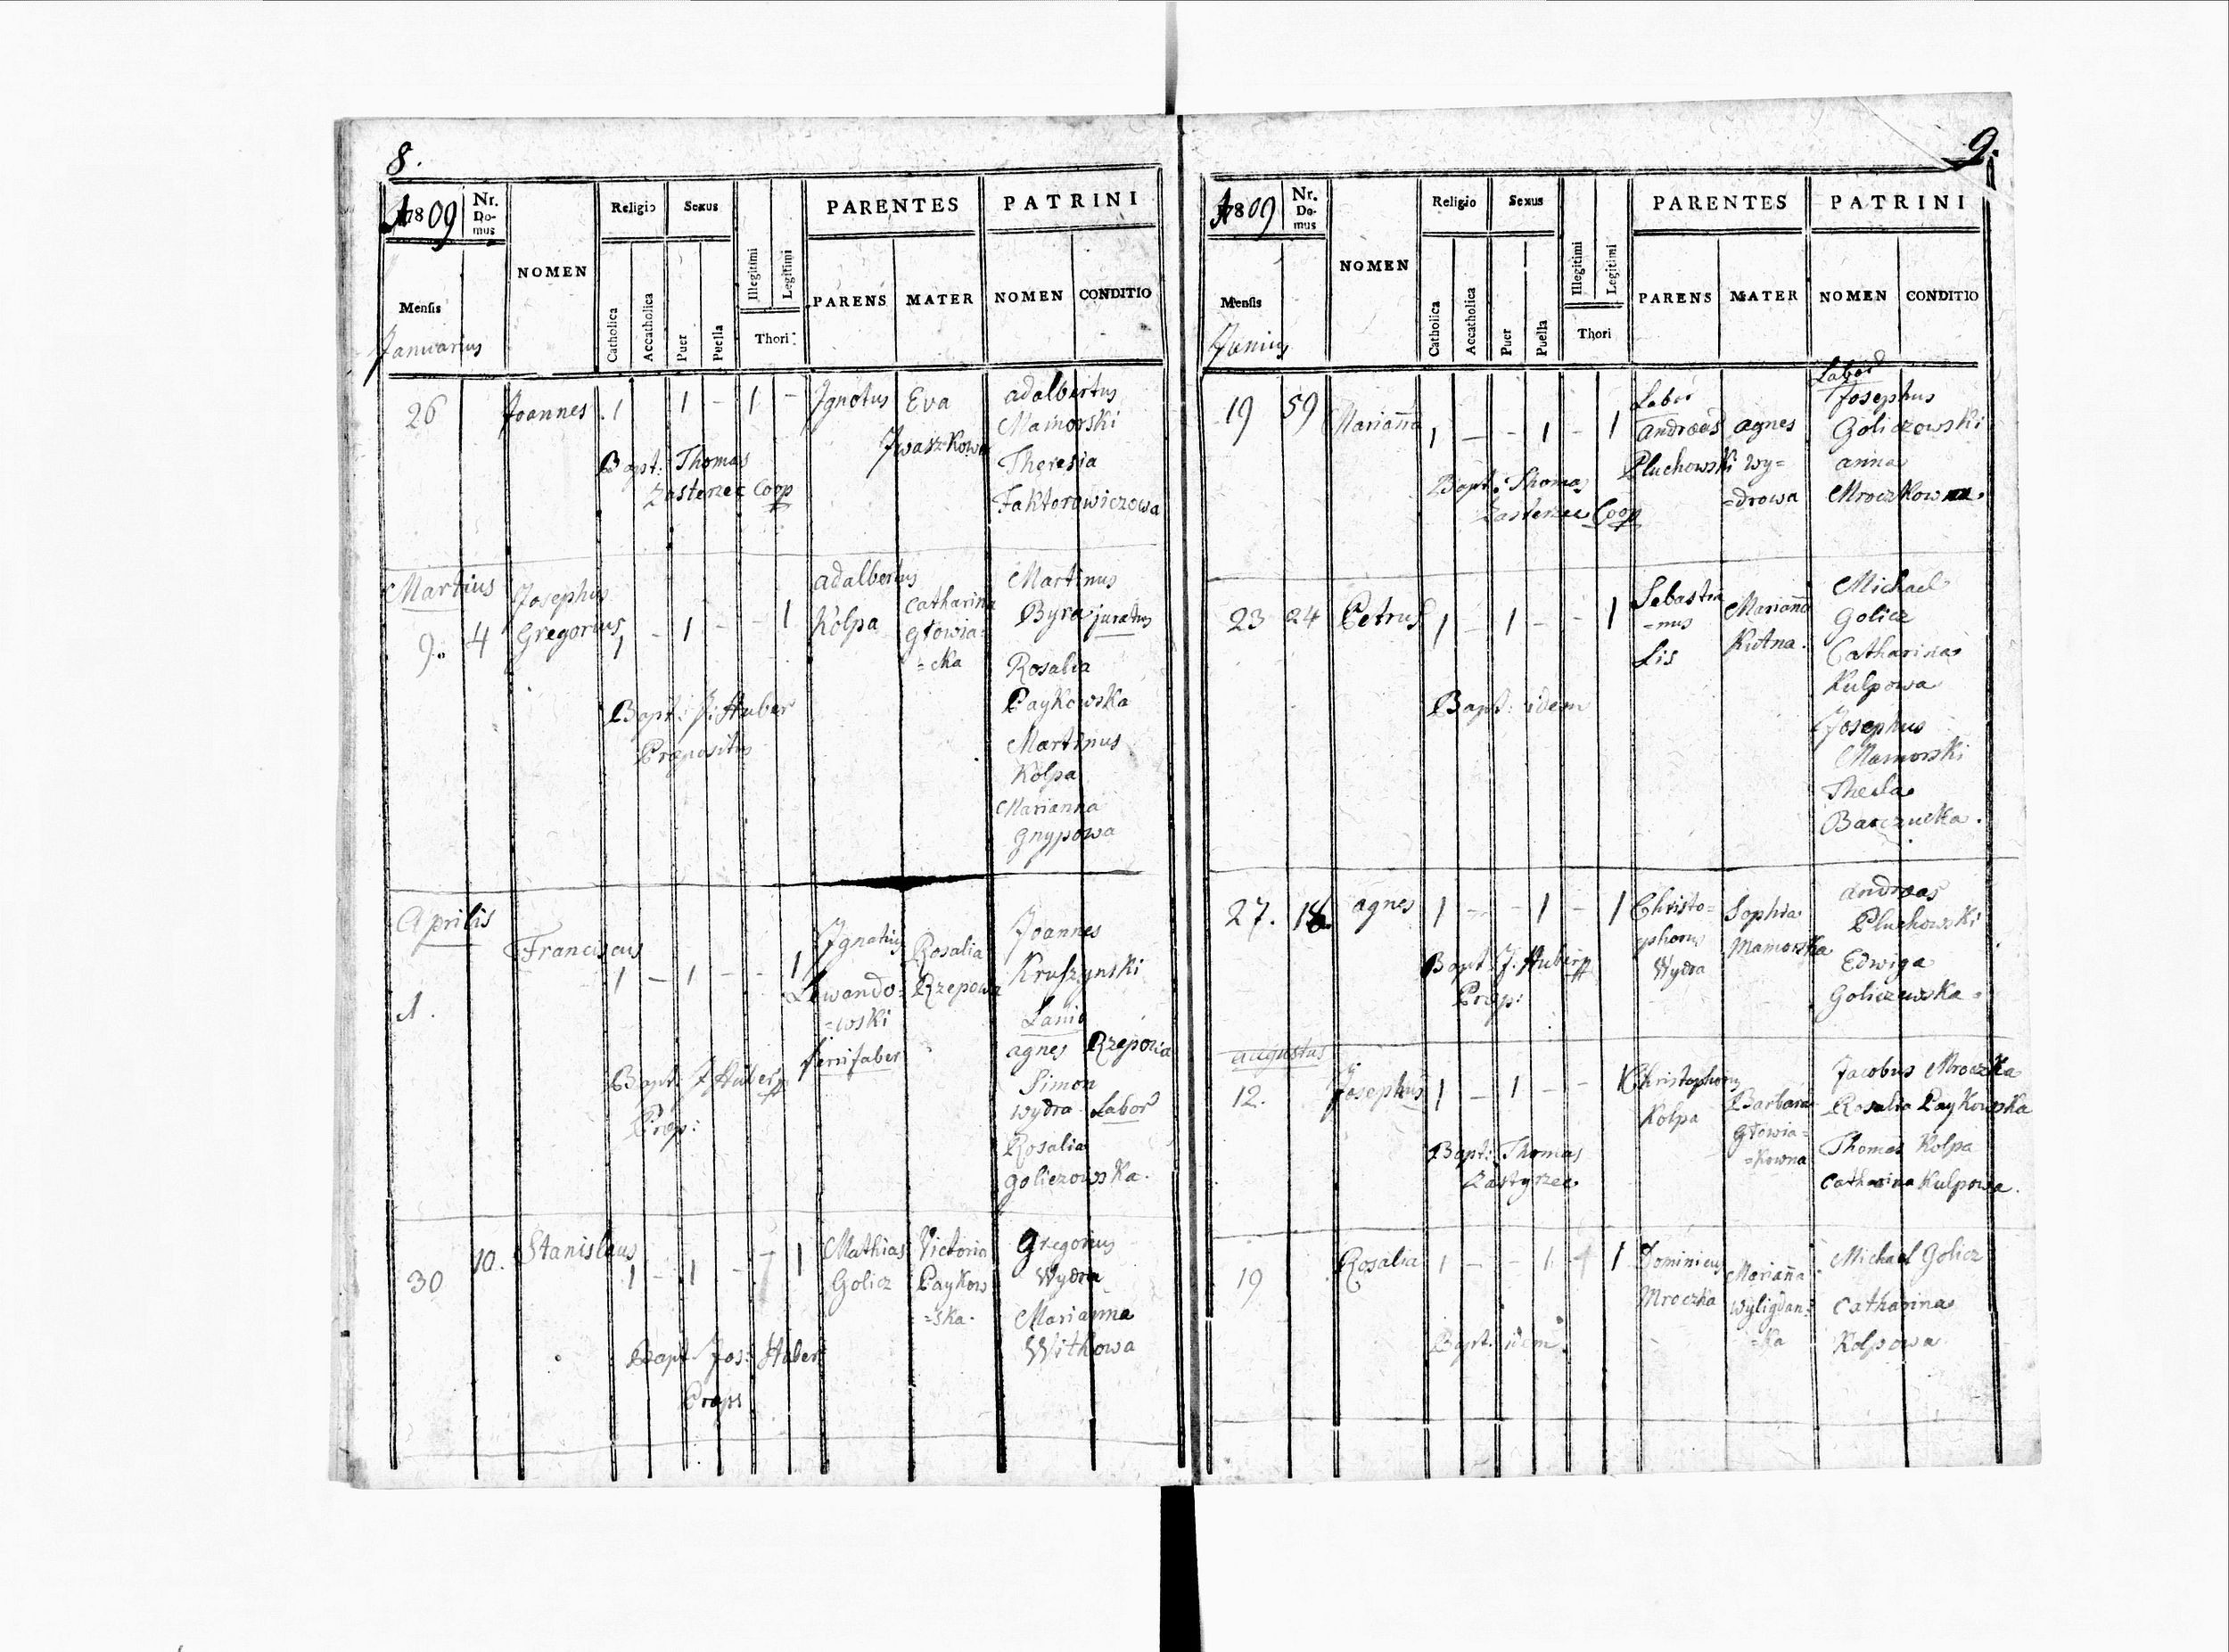 8.
1809
Nr. Do- mus
NOMEN
Religio
Sexus
PARENTES
PATRINI
Mensis
Catholica
Accatholica
Puer
Puella
Illegitimi
Legitimi
Thori
PARENS
MATER
NOMEN
CONDITIO
Januarius
26
Joannes
1 1 - 1 -
Ignotus
Eva
Iwaszkowa
adalbertus
Mamorski
Theresia
Faktorowiczowa
Bapt: Thomas
Zasterzec Coop
Martius
9.. 4
Josephus
Gregorius
1 - 1 - - 1
adalbertus
Kolpa
Catharina
Głowia=
=cka
Martinus
Byra juratus
Rosalia
Paykowska
Martinus
Kolpa
Marianna
Gnypowa
Bapt: J: Huber
Præpositus
Aprilis
1.
Franciscus
1 - 1 - - 1
Ignatius
Lewando=
=wski
ferrifaber
Rosalia
Rzepowa
Joannes
Kruszynski
Lanio
agnes Rzepowa
Simon
Wydra Labor
Rosalia
Goliczowska.
Bapt: J Huber
Præp:
30
10.
Stanislaus
1 - 1 - 1
Mathias
Golicz
Victoria
Paykow
=ska.
Gregorius
Wydra
Marianna
Witkowa
Bapt Jos: Huber
Præps
9.
1809
Nr. Do- mus
NOMEN
Religio
Sexus
PARENTES
PATRINI
Mensis
Catholica
Accatholica
Puer
Puella
Illegitimi
Legitimi
Thori
PARENS
MATER
NOMEN
CONDITIO
Junius
19 59
Marianna
1 - - 1 - 1
Labor
Andreas
Pluchowski
agnes
Wy=
=drowa
Labor
Josephus
Goliczowski
anna
Bapt: Thomas
Zasterzec Coop
23 24
Petrus
1 - 1 - - 1
Sebastia
=nus
Lis
Marianna
Kutna.
Michael
Golicz
Catharina
Kulpowa
Josephus
Mamorski
Thecla
Barczucka.
Bapt: idem
27. 18.
agnes
1 - - 1 - 1
Christo=
phorus
Wydra
Sophia
Mamorska
andreas
Pluchowski
Edwiga
Goliczowska
Bapt J. Huber
Præp:
augustus
12.
Josephus
1 - 1 - - 1
Christophorus
Kolpa
Barbara
Głowia=
=kowna
Jacobus Mroczka
Rosalia Paykowska
Thomas Kolpa
Catharina Kulpowa.
Bapt: Thomas
Zastyrzec
19
Rosalia
1 - - 1 1
Dominicus
Mroczka
Marianna
Wyligdan=
=ka
Michael Golicz
Catharina
Kolpowa
Bapt. idem.